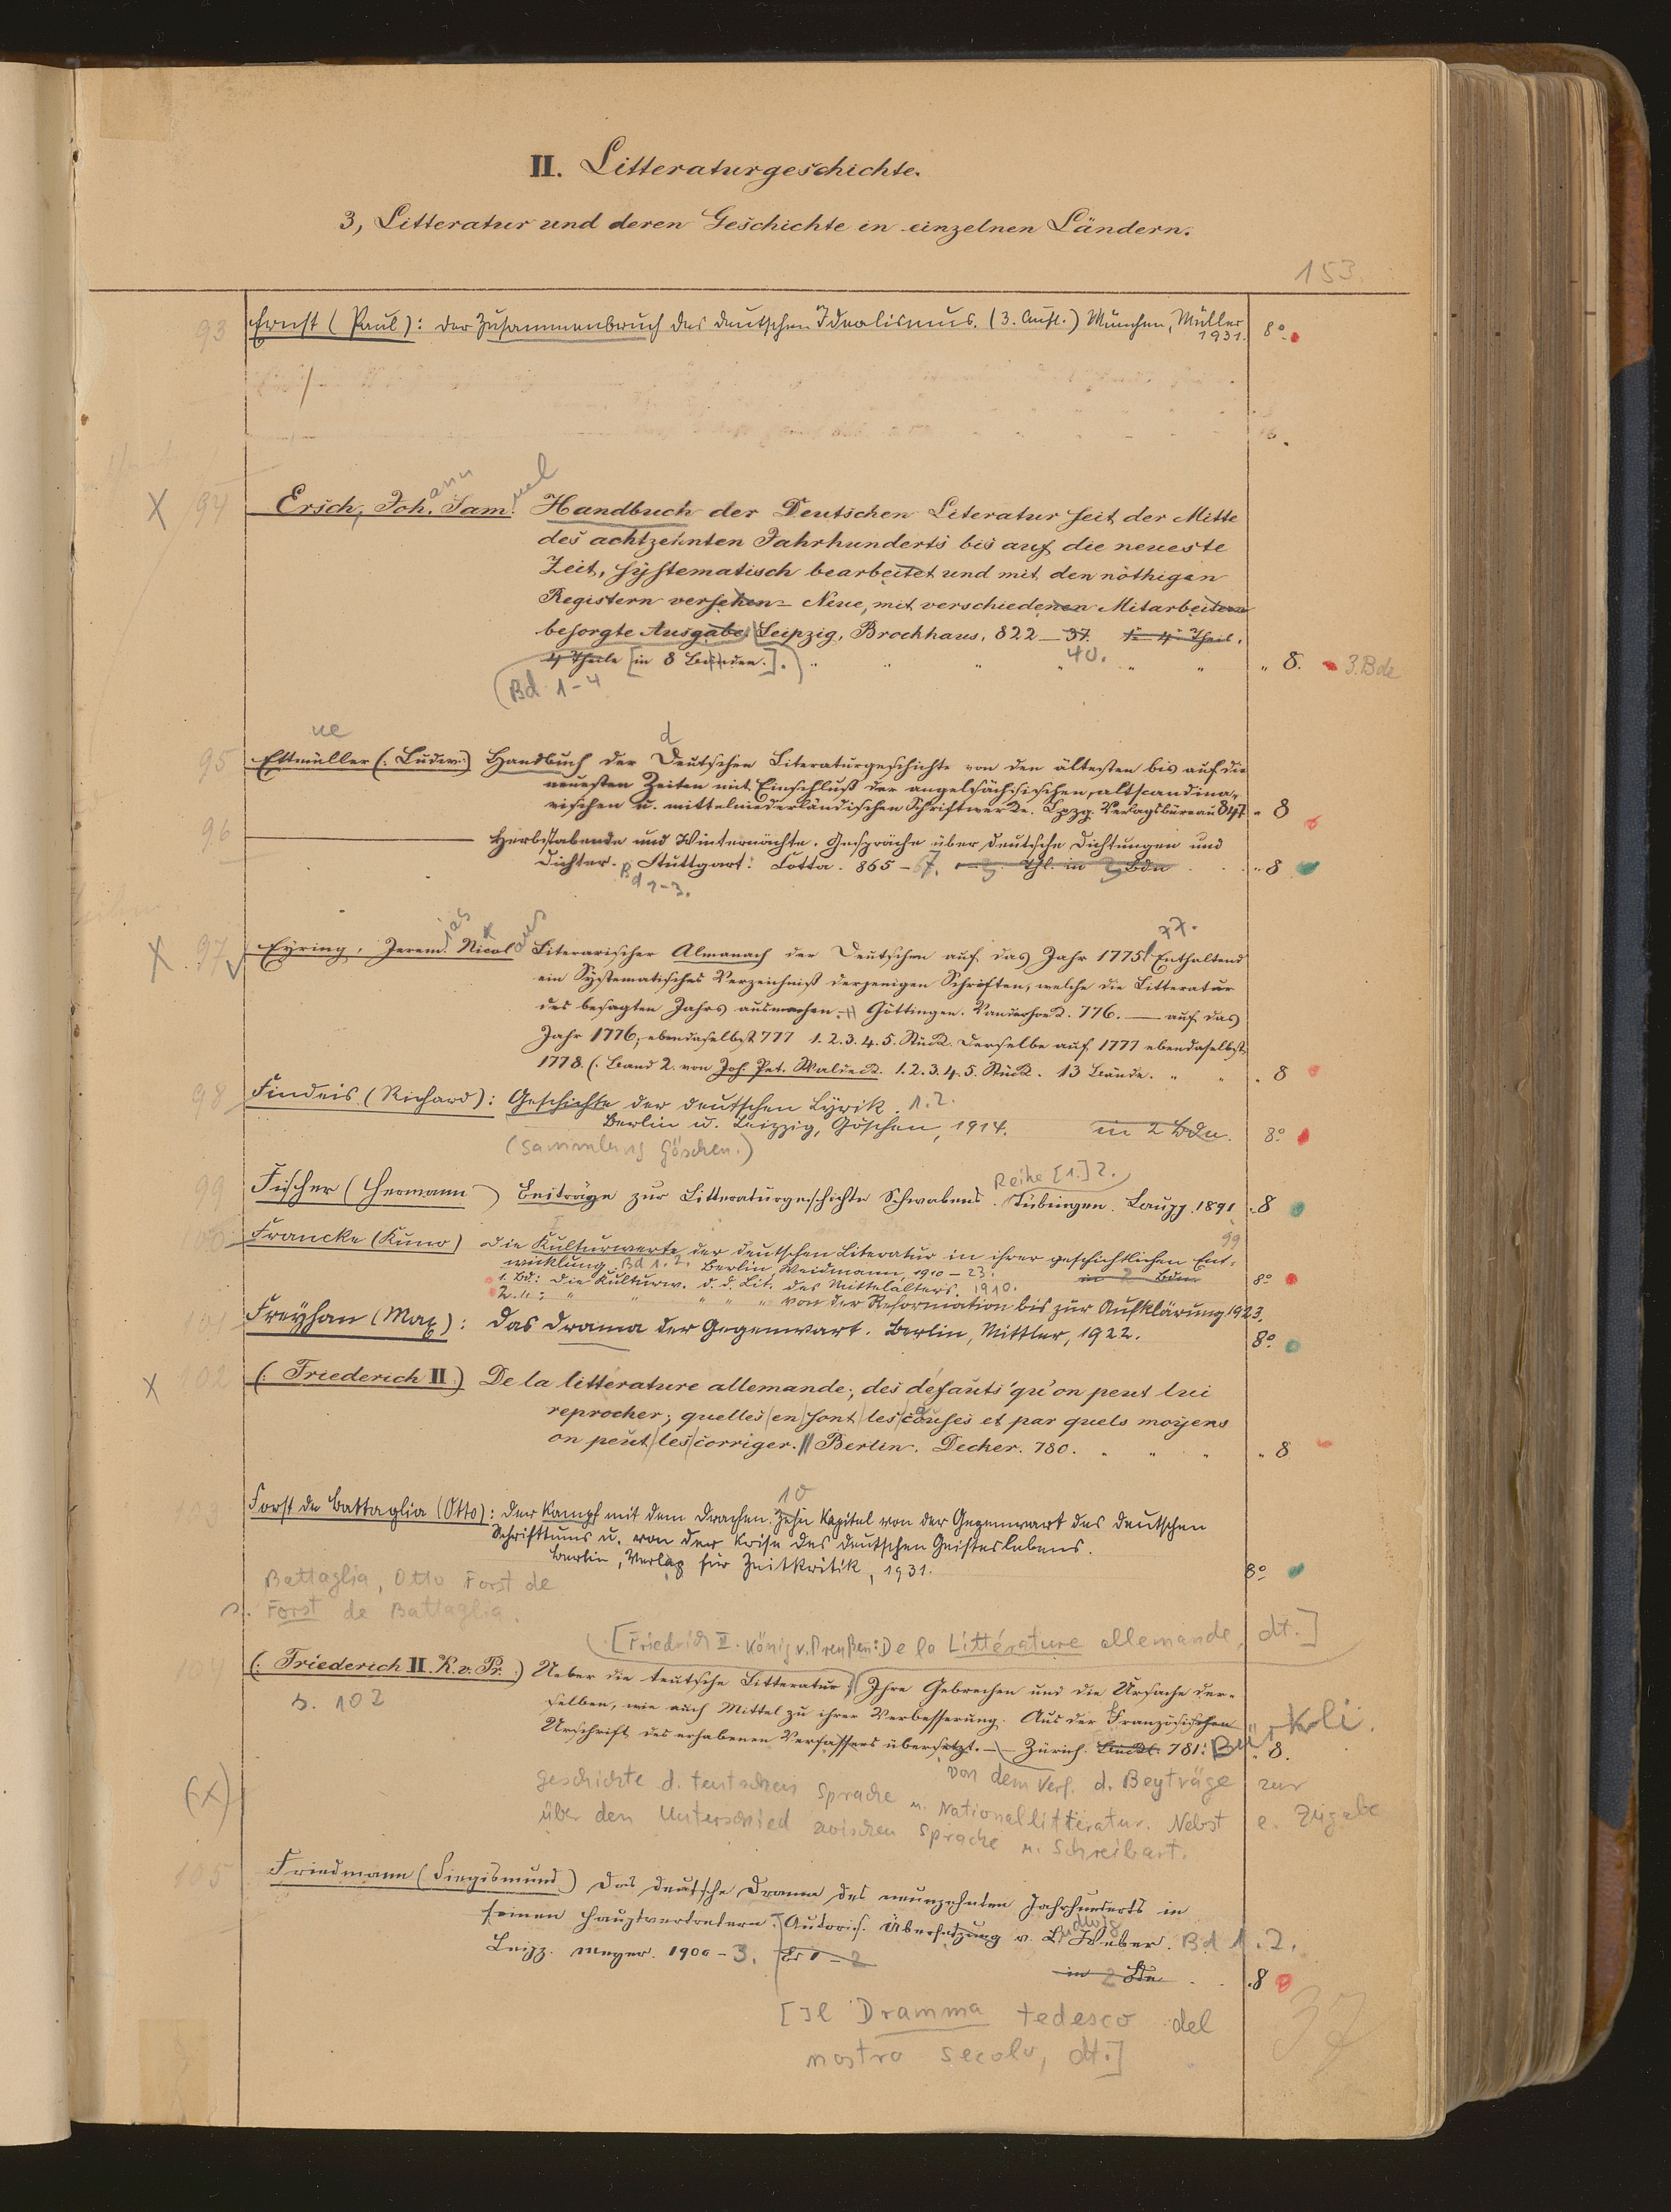 II. Litteraturgeschichte.
3, Litteratur und deren Geschichte in einzelnen Ländern.
153.
93 Ernst (Paul): Der Zusammenbruch des deutschen Idealismus. (3. Aufl.) München, Müller 8°
1931.
X 94 Ersch, Joh.ann Sam.uel Handbuch der Deutschen Literatur seit der Mitte
des achtzehnten Jahrhunderts bis auf die neueste
Zeit, systematisch bearbeitet und mit den nöthigen
Registern versehen - Neue, mit verschiedenen Mitarbeitern
besorgte Ausgabe. Leipzig, Brockhaus, 822 - 37. 1-4 Theil.
40.
4 Theile [in 8 Bänden.]. " 8. 3 Bde
(Bd 1-4
95 Ettmüller (: Ludw:) Handbuch der Deutschen Literaturgeschichte von den ältesten bis auf die
neuesten Zeiten mit Einschluß der angelsächsischen, altscandina-
vischen u. mittelniederländischen Schriftwerke. Lpzg. Verlagsbüreau 847 " 8
96 Herbstabende und Winternächte. Gespräche über deutsche Dichtungen und
Dichter. Stuttgart: Cotta. 865 - 67. 1-3 Thl. in 3 Bdn " 8
Bd 1-3.
77.
X 97 Eyring, Jerem.ias Nicolaus Literarischer Almanach der Deutschen auf das Jahr 1775 Enthaltend
ein Systematisches Verzeichniß derjenigen Schriften, welche die Litteratur
des besagten Jahrs ausmachen. Göttingen. Vanderhoek. 776. — auf das
Jahr 1776, ebendaselbst 777 1.2.3.4.5. Stück. Derselbe auf 1777 ebendaselbst
1778. (: Band 2. von Joh. Pet. Waldeck. 1.2.3.4.5. Stück. 13 Bände. " 8
98 Findeis (Richard): Geschichte der deutschen Lyrik. 1.2.
Berlin u. Leipzig, Göschen, 1914. in 2 Bdn. 8°
(Sammlung Göschen.)
Reihe [1.] 2.
99 Fischer (Hermann) Beiträge zur Litteraturgeschichte Schwabens. Tübingen. Laupp. 1891 " 8
99
100 Francke (Kuno) Die Kulturwerte der deutschen Literatur in ihrer geschichtlichen Ent-
wicklung. Bd 1.2. Berlin, Weidmann, 1910 - 23. in 2 Bdn 8°
1. Bd: Die Kulturw. d. d. Lit. des Mittelalters. 1910.
2. ": " " " " " von der Reformation bis zur Aufklärung 1923.
101 Freyhan (Max): Das Drama der Gegenwart. Berlin, Mittler, 1922. 8°
X 102 (: Friederich II:) De la litterature allemande; des defauts qu'on peut lui
reprocher; quelles en sont les causes et par quels moyens
on peut les corriger. Berlin. Decker. 780. " 8
10
103 Forst de Battaglia (Otto): Der Kampf mit dem Drachen. Zehn Kapitel von der Gegenwart des deutschen
Schrifttums u. von der Krise des deutschen Geisteslebens.
Berlin, Verlag für Zeitkritik, 1931. 8°
Battaglia, Otto Forst de
s. Forst de Battaglia.
[Friedrich II. König v. Preußen: De la Littérature allemande, dt.]
104 (: Friederich II. K. v. Pr.:) Ueber die teutsche Litteratur; Ihre Gebrechen und die Ursache der-
s. 102
selben, wie auch Mittel zu ihrer Verbesserung. Aus der Französischen
Urschrift des erhabenen Verfassers übersetzt. — Zürich. 781. Bürkli. " 8.
von dem Verf. d. Beyträge zur
(X) Geschichte d. teutschen Sprache u. Nationallitteratur. Nebst e. Zugabe
über den Unterschied zwischen Sprache u. Schreibart.
105 Friedmann (Siegismund) Das deutsche Drama des neunzehnten Jahrhunderts in
seinen Hauptvertretern. Autoris. Übersetzung v. Ludwig Weber. Bd 1.2.
Leipz. Meyer. 1900 - 3. Bd 1-2
in 2 Bdn " 8
[Il Dramma tedesco del
nostro secolo, dt.]
37